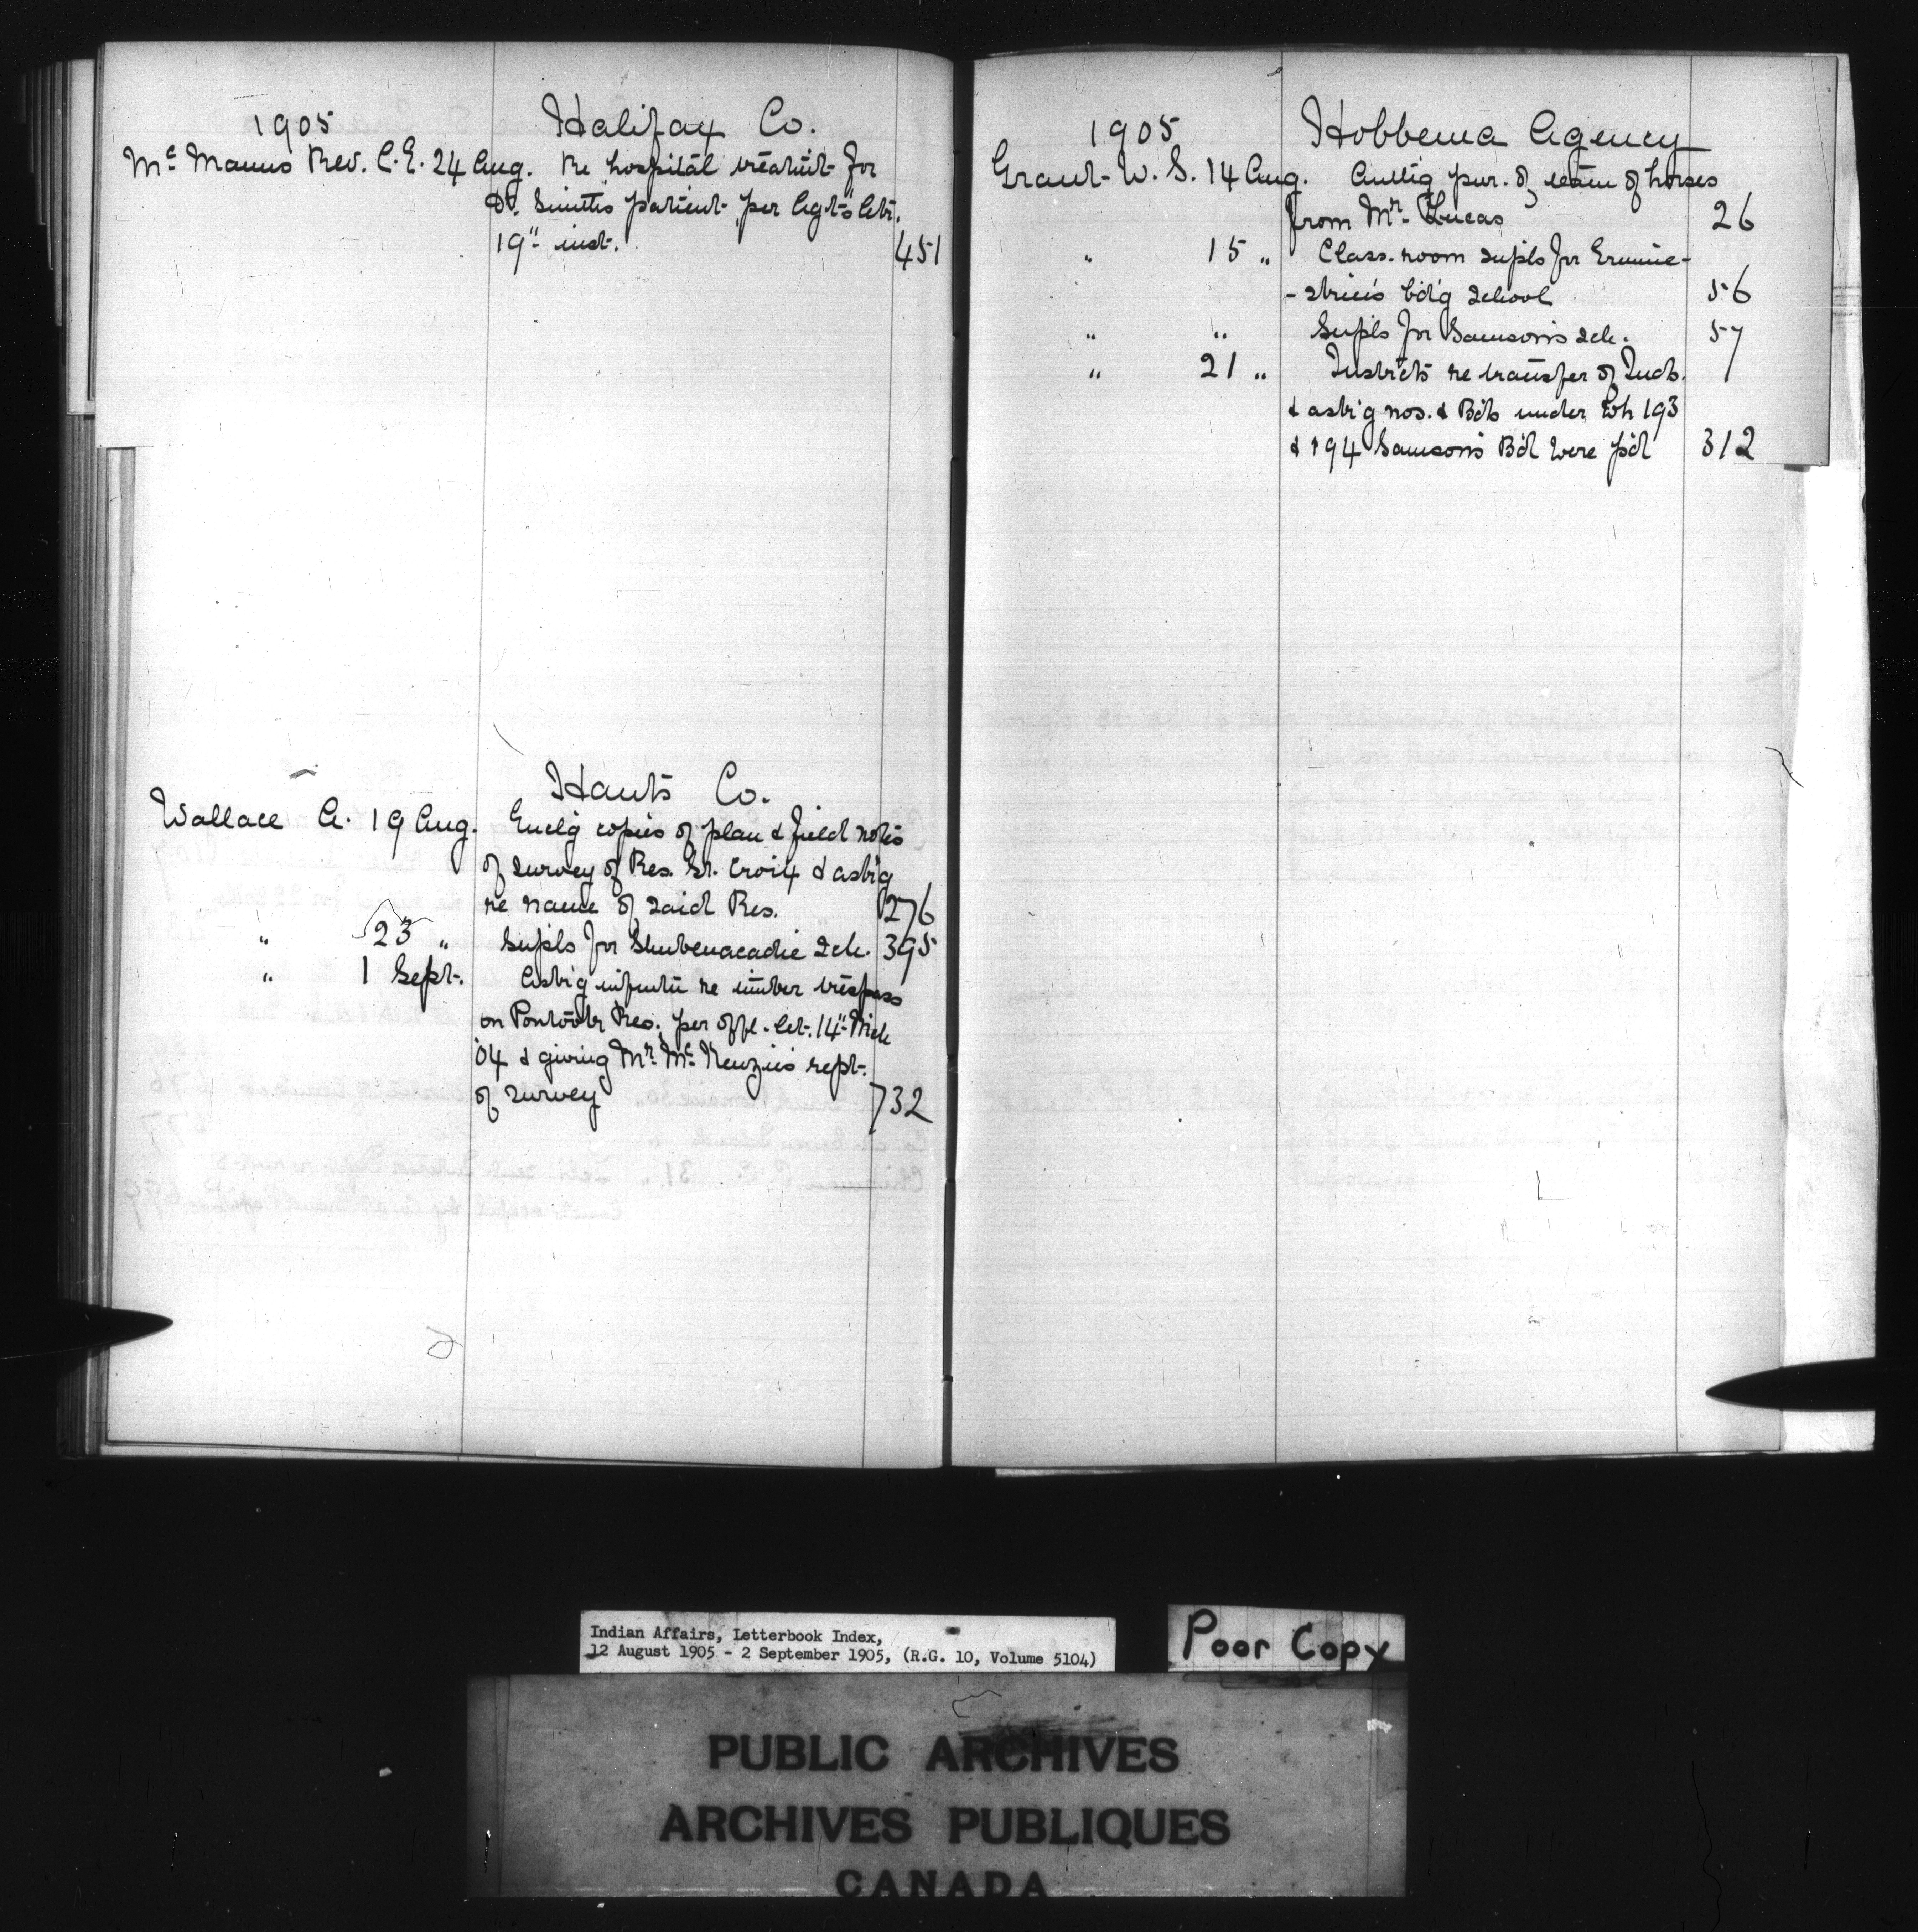 1905 Halifax Co.
McManus Rev. C.E. 24 Aug. Re hospital treatm't for
Dr. Smith's patient per Agt's letr.
19" inst. 451
Hants Co.
Wallace A. 19 Aug. Encl'g copies of plan & field notes
of survey of Res. St. Croix & ask'g
re name of said Res. 276
" 23 " Supls for Shubenacadie Sch. 395
" 1 Sept. Ask'g inform'n re timber trespass
on Res. per offl. let. 14" Mch
'04 & giving Mr. McKenzie's rept.
of survey 732
1905 Hobbema Agency
Grant W. S. 14 Aug. Auth'g pur. of team of horses
from Mr. Lucas 26
" 15 " Class-room supls for Ermine-
-skin's b'd'g school 56
" " Supls for Samson's sch. 57
" 21 " Instrcts re transfer of Inds.
& ask'g nos. & B'ds under wh 193
& 194 Samson's B'd were p'd 312
Indian Affairs, Letterbook Index,
12 August 1905 - 2 September 1905, (R.G. 10, Volume 5104)
Poor Copy
PUBLIC ARCHIVES
ARCHIVES PUBLIQUES
CANADA